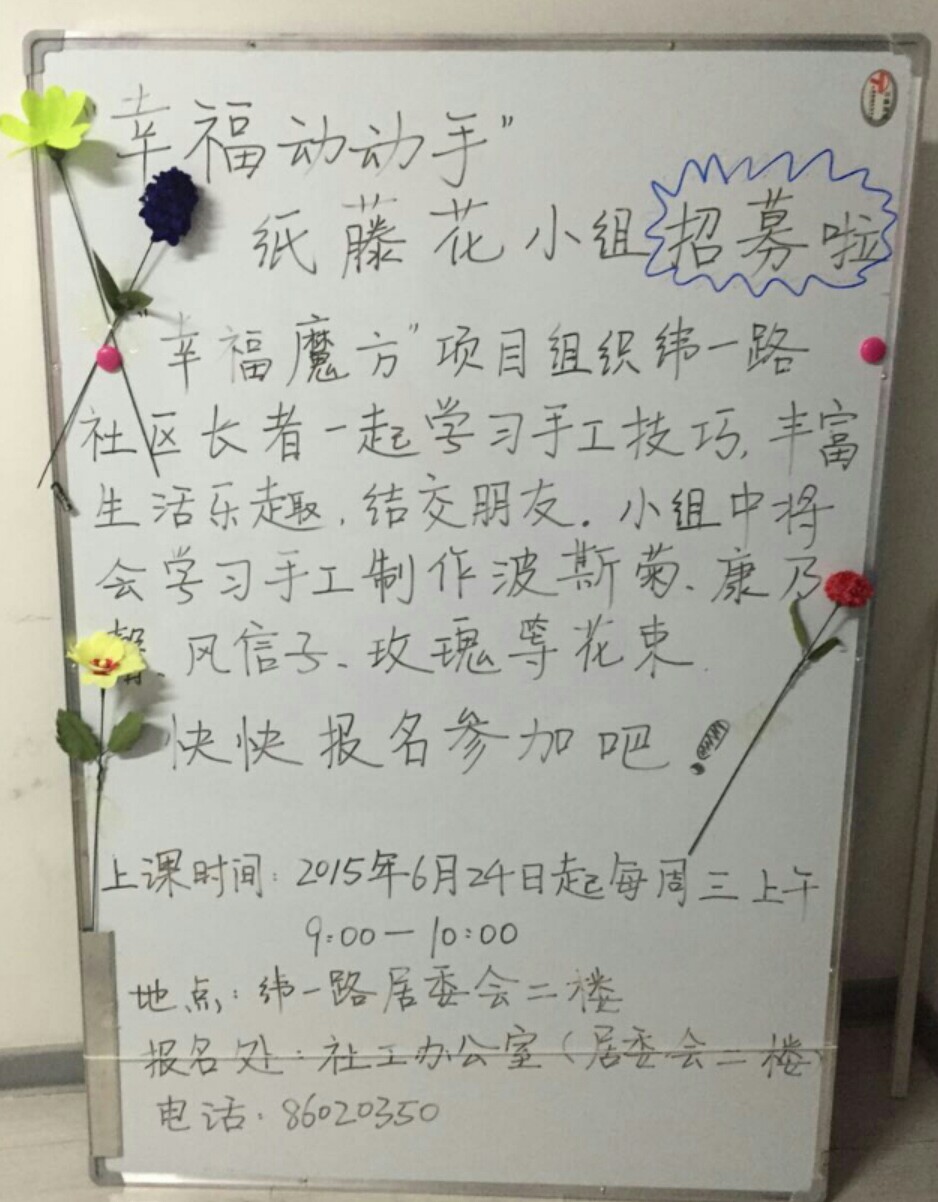 "幸福动动手"
纸藤花小组招募啦
"幸福魔方"项目组织纬一路
社区长者一起学习手工技巧,丰富
生活乐趣,结交朋友。小组中将
会学习手工制作波斯菊、康乃
馨、风信子、玫瑰等花束.
快快报名参加吧!
上课时间:2015年6月24日起每周三上午
9:00—10:00
地点:纬一路居委会二楼
报名处:社工办公室(居委会二楼)
电话:86020350